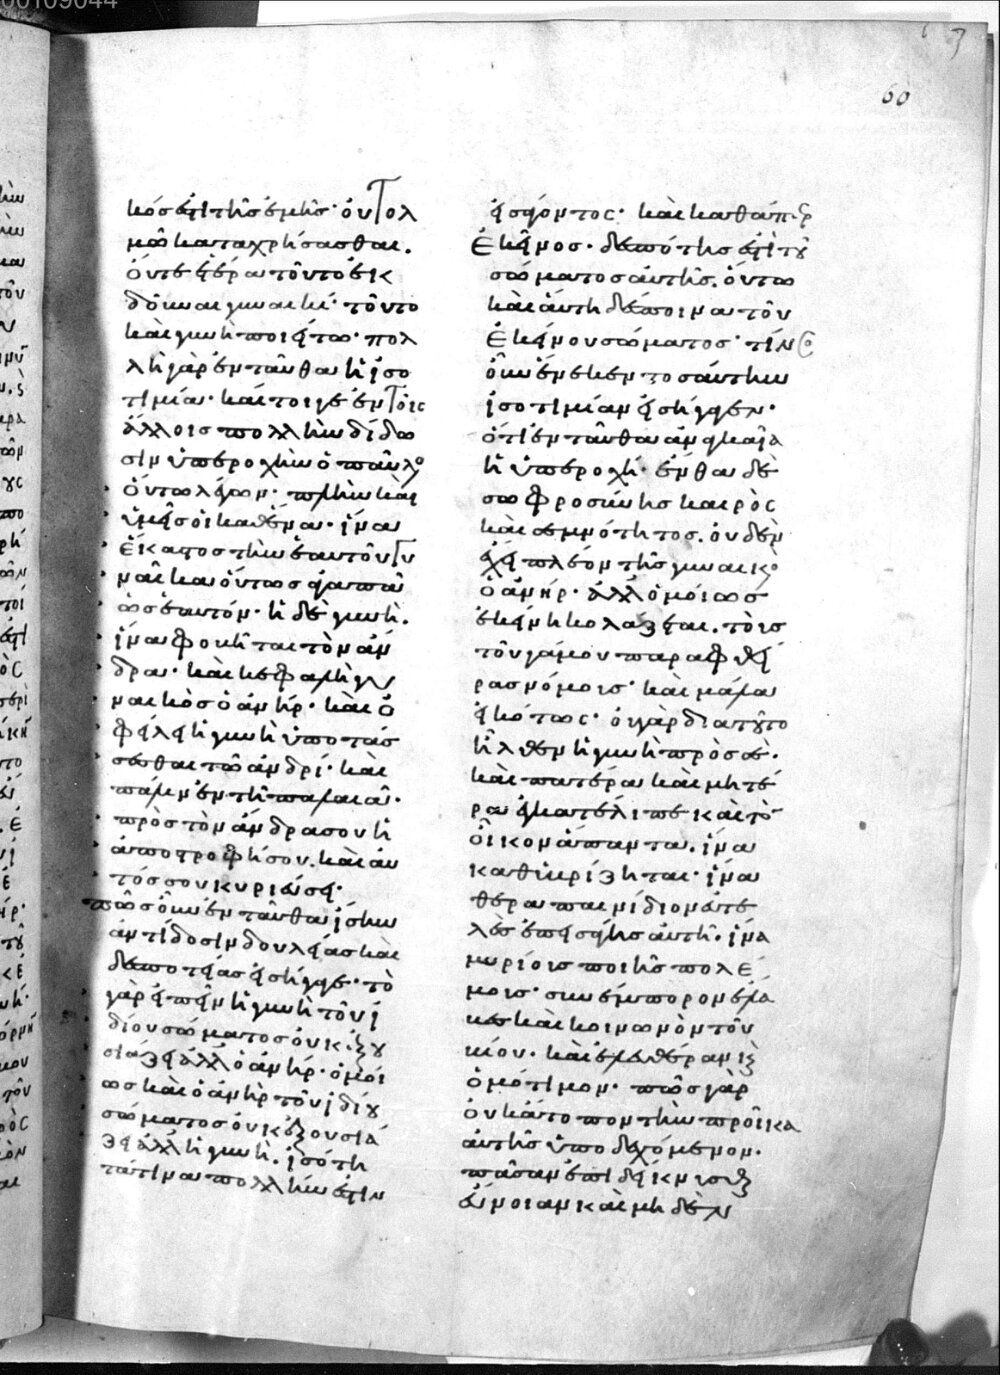 60
κόσ ἐπὶ τῆσ ἐμῆσ· οὐ τολ
μῶ καταχρήσασθαι.
οὔτε ἑτέρα τοῦτο ἐκ
δοῦναι γυναικί· τοῦτο
καὶ γυνὴ ποιείτω· πολ
λὴ γὰρ ἐνταῦθα ἡ ἰσο
τιμία· καίτοιγε ἐν τοῖς
ἄλλοισ πολλὴν δίδω
σιν ὑπεροχὴν ὁ παῦλο
οὕτω λέγων· πλὴν καὶ
ὑμεῖσ οἱ καθένα· ἵνα
ἕκαστοσ τὴν ἑαυτοῦ γυ
ναῖκα οὕτωσ ἀγαπᾶ
ὡσ ἑαυτόν· ἡ δὲ γυνὴ.
ἵνα φοβῆται τὸν ἄν
δρα· καὶ κεφαλὴ γυ
ναικὸσ ὁ ἀνήρ· καὶ ὀ
φείλει ἡ γυνὴ ὑποτάσ
σεσθαι τῶ ἀνδρί· καὶ
πάλιν ἐν τῆ παλαιᾶ·
πρὸσ τὸν ἄνδρα σου ἡ
ἀποστροφή σου. καὶ αὐ
τόσ σου κυριεύσει·
πῶσ οὖν ἐνταῦθα ἴσην
ἀντίδοσιν δουλείασ καὶ
δεσποτείασ εἰσήγαγε· τὸ
γὰρ εἰπεῖν ἡ γυνὴ τοῦ ἰ
δίου σώματοσ οὐκ ἐξου
σιάζει ἀλλ ὁ ἀνήρ· ὁμοί
ωσ καὶ ὁ ἀνὴρ τοῦ ἰδίου
σώματοσ οὐκ ἐξουσιά
ζει ἀλλ ἡ γυνή. ἰσότη
τά τινα πολλήν ἐστιν
εἰσάγοντος· καὶ καθάπερ
ἐκεῖνοσ· δεσπότησ ἐστὶ τοῦ
σώματοσ αὐτῆσ. οὕτω
καὶ αὕτη δέσποινα τοῦ
ἐκείνου σώματοσ· τίνος
οὖν ἕνεκεν τοσαύτην
ἰσοτιμίαν εἰσήγαγεν·
ὅτι ἐνταῦθα ἀναγκαία
ἡ ὑπεροχή· ἔνθα δὲ
σωφροσύνησ καιρὸς
καὶ σεμνότητοσ. οὐδὲν
ἔχει πλέον τῆσ γυναικὸ
ὁ ἀνήρ· ἀλλ ὁμοίωσ
ἐκείνη κολάζεται. τοὺσ
τοῦ γάμου παραφθεί
ρασ νόμουσ· καὶ μάλα
εἰκότως· οὐ γὰρ διατοῦτο
ἦλθεν ἡ γυνὴ πρὸσ σὲ.
καὶ πατέρα καὶ μητέ
ρα ἐγκατέλιπε καὶ τὸν
οἶκον ἅπαντα. ἵνα
καθυβρίζηται· ἵνα
θεραπαινίδιον εὐτε
λὲσ ἐπεισάγησ αὐτῆ. ἵνα
μυρίουσ ποιῆσ πολέ
μουσ· συνέμπορον ἔλα
βεσ καὶ κοινωνὸν τοῦ
βίου. καὶ ἐλευθέραν καὶ
ὁμότιμον· πῶσ γὰρ
οὐκ ἄτοπον τὴν προῖκα
αὐτῆσ ὑποδεχόμενον.
πᾶσαν ἐπιδείκνυσθαι
εὔνοιαν καὶ μηδὲν